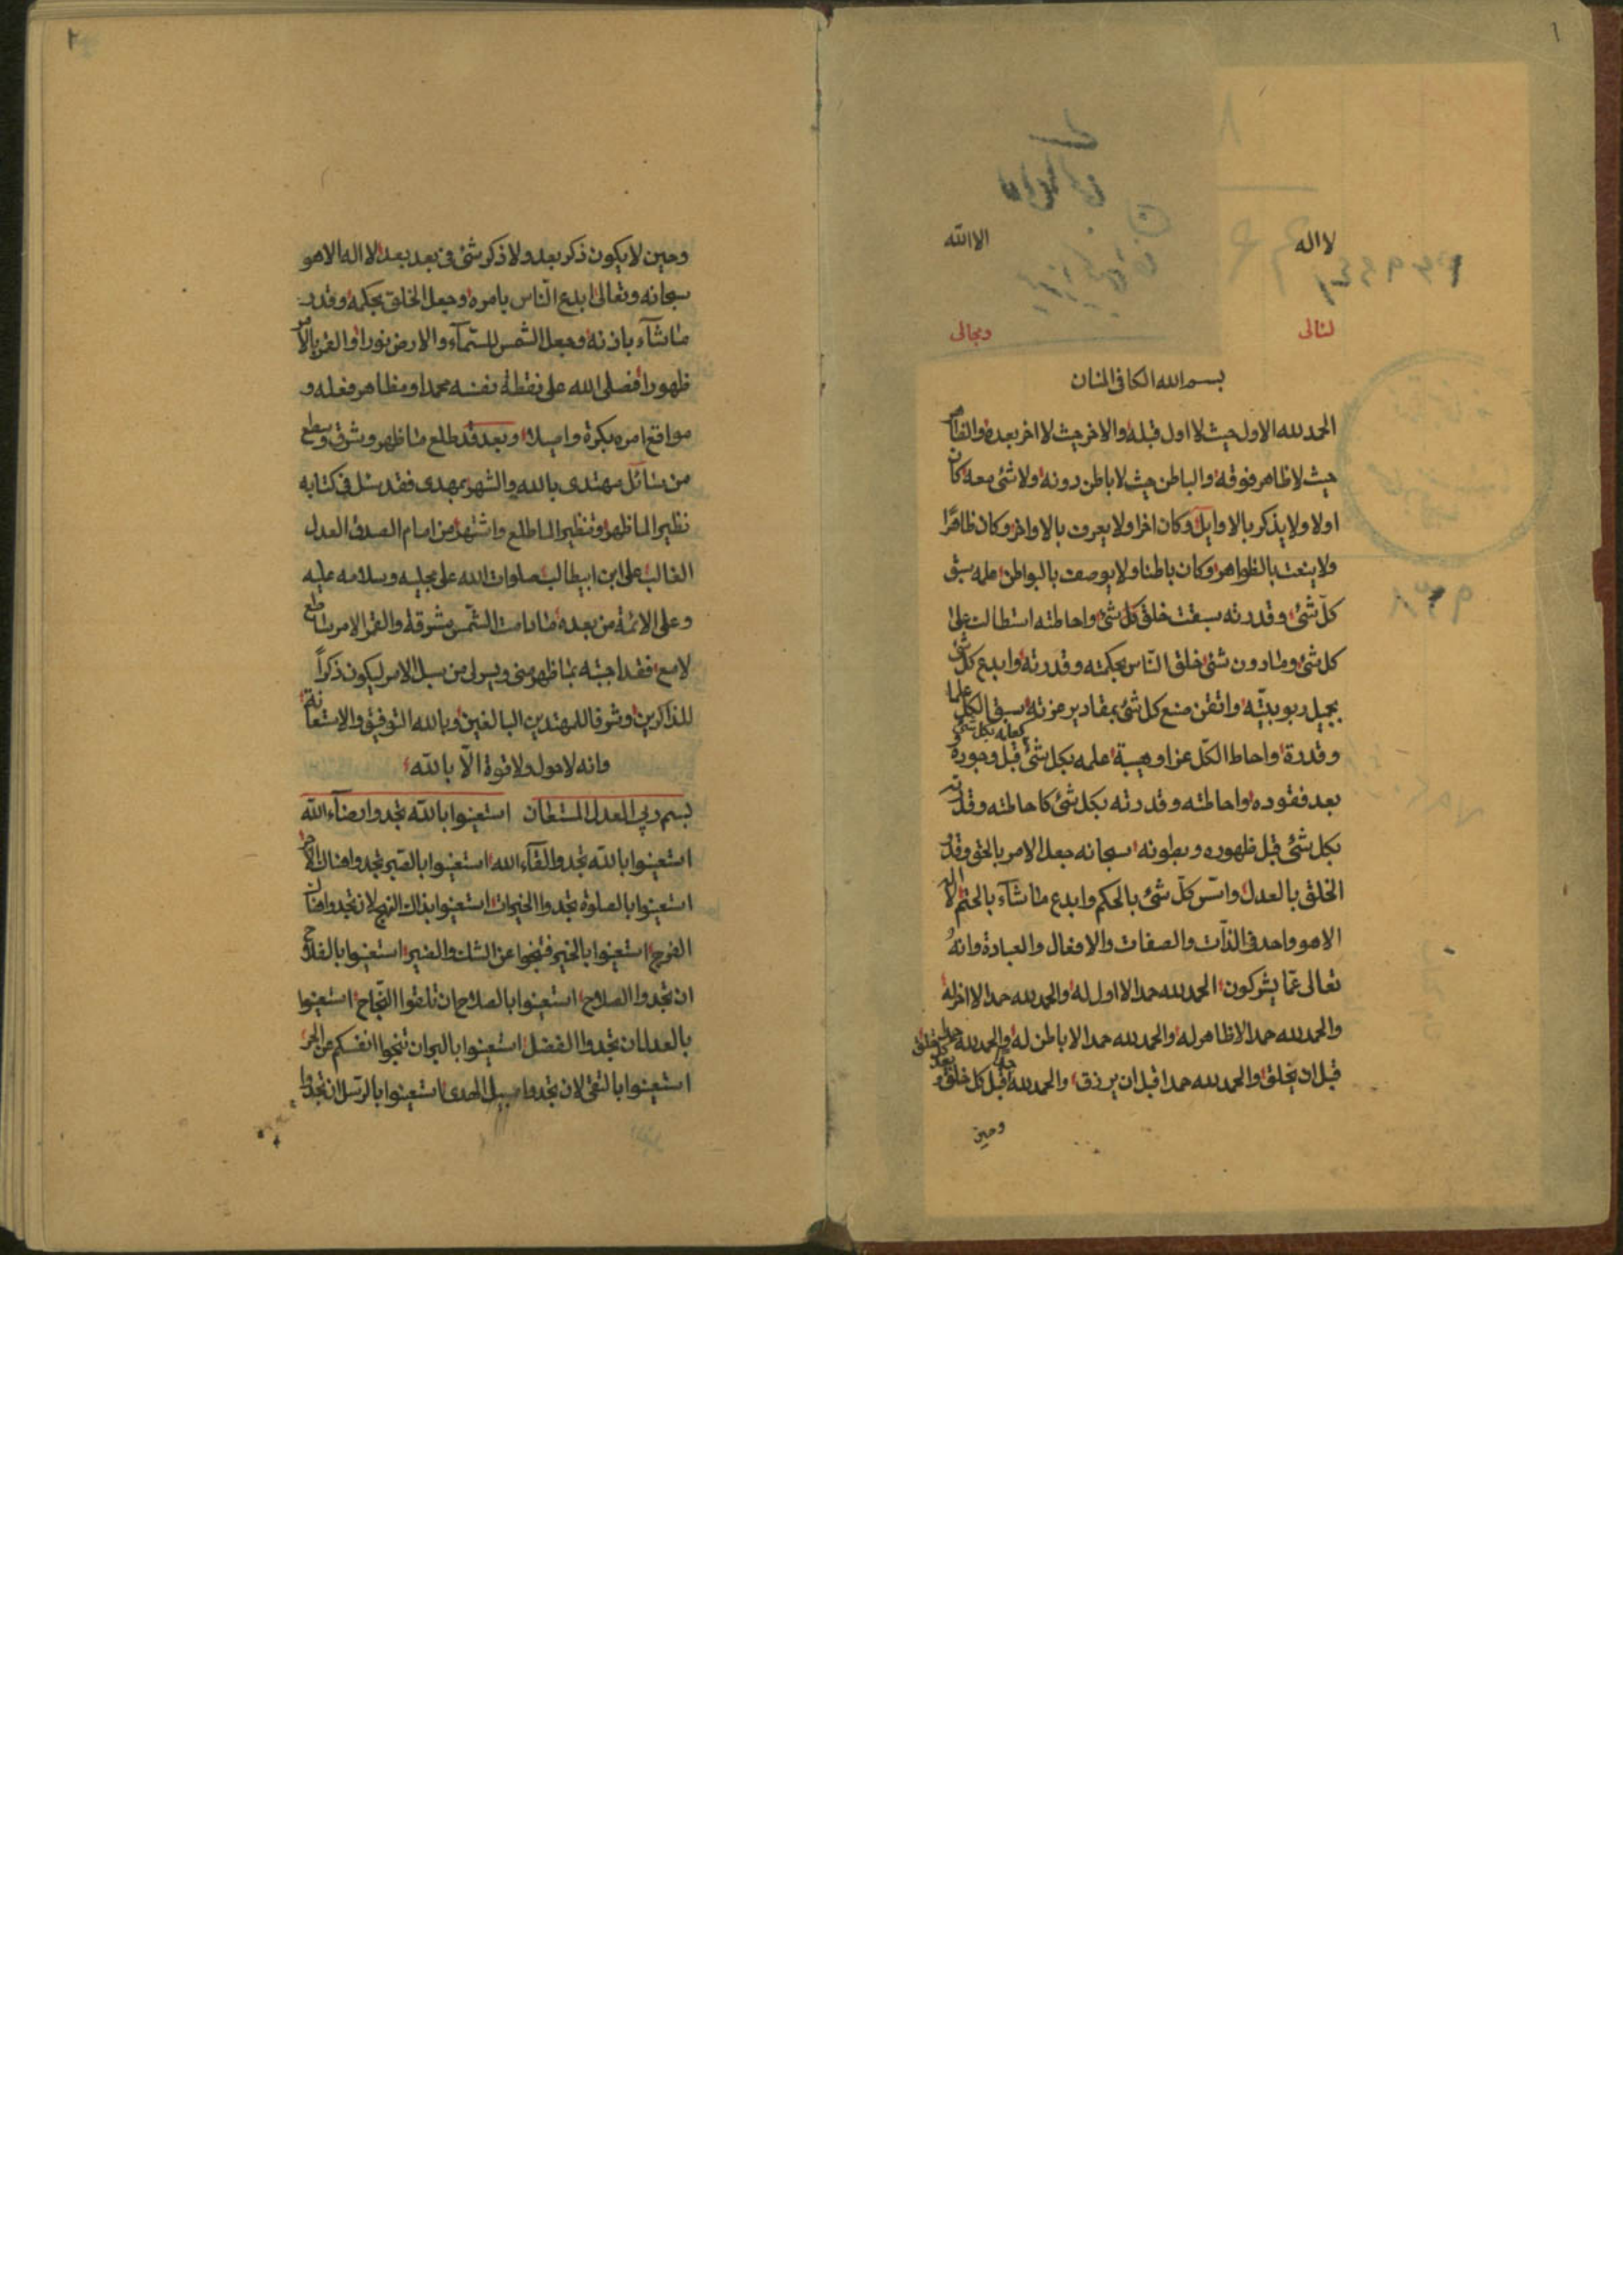 ١
لا اله الا الله
لئالی ومجالی
بسم الله الكافى المنان
الحمد لله الاول حيث لا اول قبله والاخر حيث لا اخر بعده والظاهر
حيث لا ظاهر فوقه والباطن حيث لا باطن دونه ولا شئ معه كان
اولا ولا يذكر بالاوايل وكان اخرا ولا يعرف بالاواخر وكان ظاهرًا
ولا ينعت بالظواهر وكان باطنا ولا يوصف بالبواطن علمه سبق
كلّ شئ وقدرته سبقت خلق كل شئ واحاطته استطالت على
كل شئ وما دون شئ خلق النّاس بحكمته وقدرته وابدع كل شئ
بجميل ربوبيّته واتقن صنع كل شئ بمقادير عزته سبق الكل علما
وقدرة واحاط الكلّ عزا وهيبة علمه بكل شئ قبل وجوده كعلمه بكل شئ
بعد فقوده واحاطته وقدرته بكل شئ كاحاطته وقدرته
بكل شئ قبل ظهوره وبطونه سبحانه جعل الامر بالحق وقدر
الخلق بالعدل واسّس كلّ شئ بالحكم وابدع ما شآء بالحتم لا اله
الا هو واحد فى الذّات والصفات والافعال والعبادة وانهُ
تعالى عمّا يشركون الحمد لله حمدا لا اول له والحمد لله حمدا لا اخر له
والحمد لله حمدا لا ظاهر له والحمد لله حمدا لا باطن له والحمد لله حمدا
قبل ان يخلق والحمد لله حمدا قبل ان يرزق والحمد لله حمدا قبل كل خلق و
وحين
٢
وحين لا يكون ذكر بعد ولا ذكر شئ فى بعد بعد لا اله الا هو
سبحانه وتعالى ابدع النّاس بامره وجعل الخلق بحكمه وقدر
ما شآء باذنه وجعل الشمس للسّمآء والارض نورا والقمر بالامر
ظهورا فصلى الله على نقطة نفسه محمد ومظاهر فعله و
مواقع امره بكرة واصيلا وبعد قد طلع ما ظهر وشرق وسطع
من سائل مهتدى بالله والشهر بمهدى فقد سئل فى كتابه
نظير الما ظهر ونظير الما طلع واشتهر من امام الصدق العدل
الغالب على ابن ابيطالب صلوات الله على مجليه وسلامه عليه
وعلى الائمة من بعده ما دامت الشّمس مشرقة والقمر الامر ساطع
لامع فقد اجبته بما ظهر منى ويسر لى من سبل الامر ليكون ذكراً
للذاكرين وشرفا للمهتدين البالغين وبالله التوفيق والاستعانة
وانه لا حول ولا قوة الّا بالله
بسم ربي العدل المستعان استعينوا بالله تجدوا رضآء الله
استعينوا بالله تجدوا لقآء الله استعينوا بالصّبر تجدوا هناك الاجر
استعينوا بالصلوة تجدوا الخيرات استعينوا بذلك النهج لان تجدوا هنالك
الفرج استعينوا بالخير فتنجوا عن الشك والضير استعينوا بالفلاح
ان تجدوا الصلاح استعينوا بالصلاح ان تلقوا النّجاح استعينوا
بالعدل ان تجدوا الفضل استعينوا بالبر ان تنجوا انفسكم عن الحر
استعينوا بالتقى لان تجدوا سبيل الهدى استعينوا بالرّسل ان تجدوا